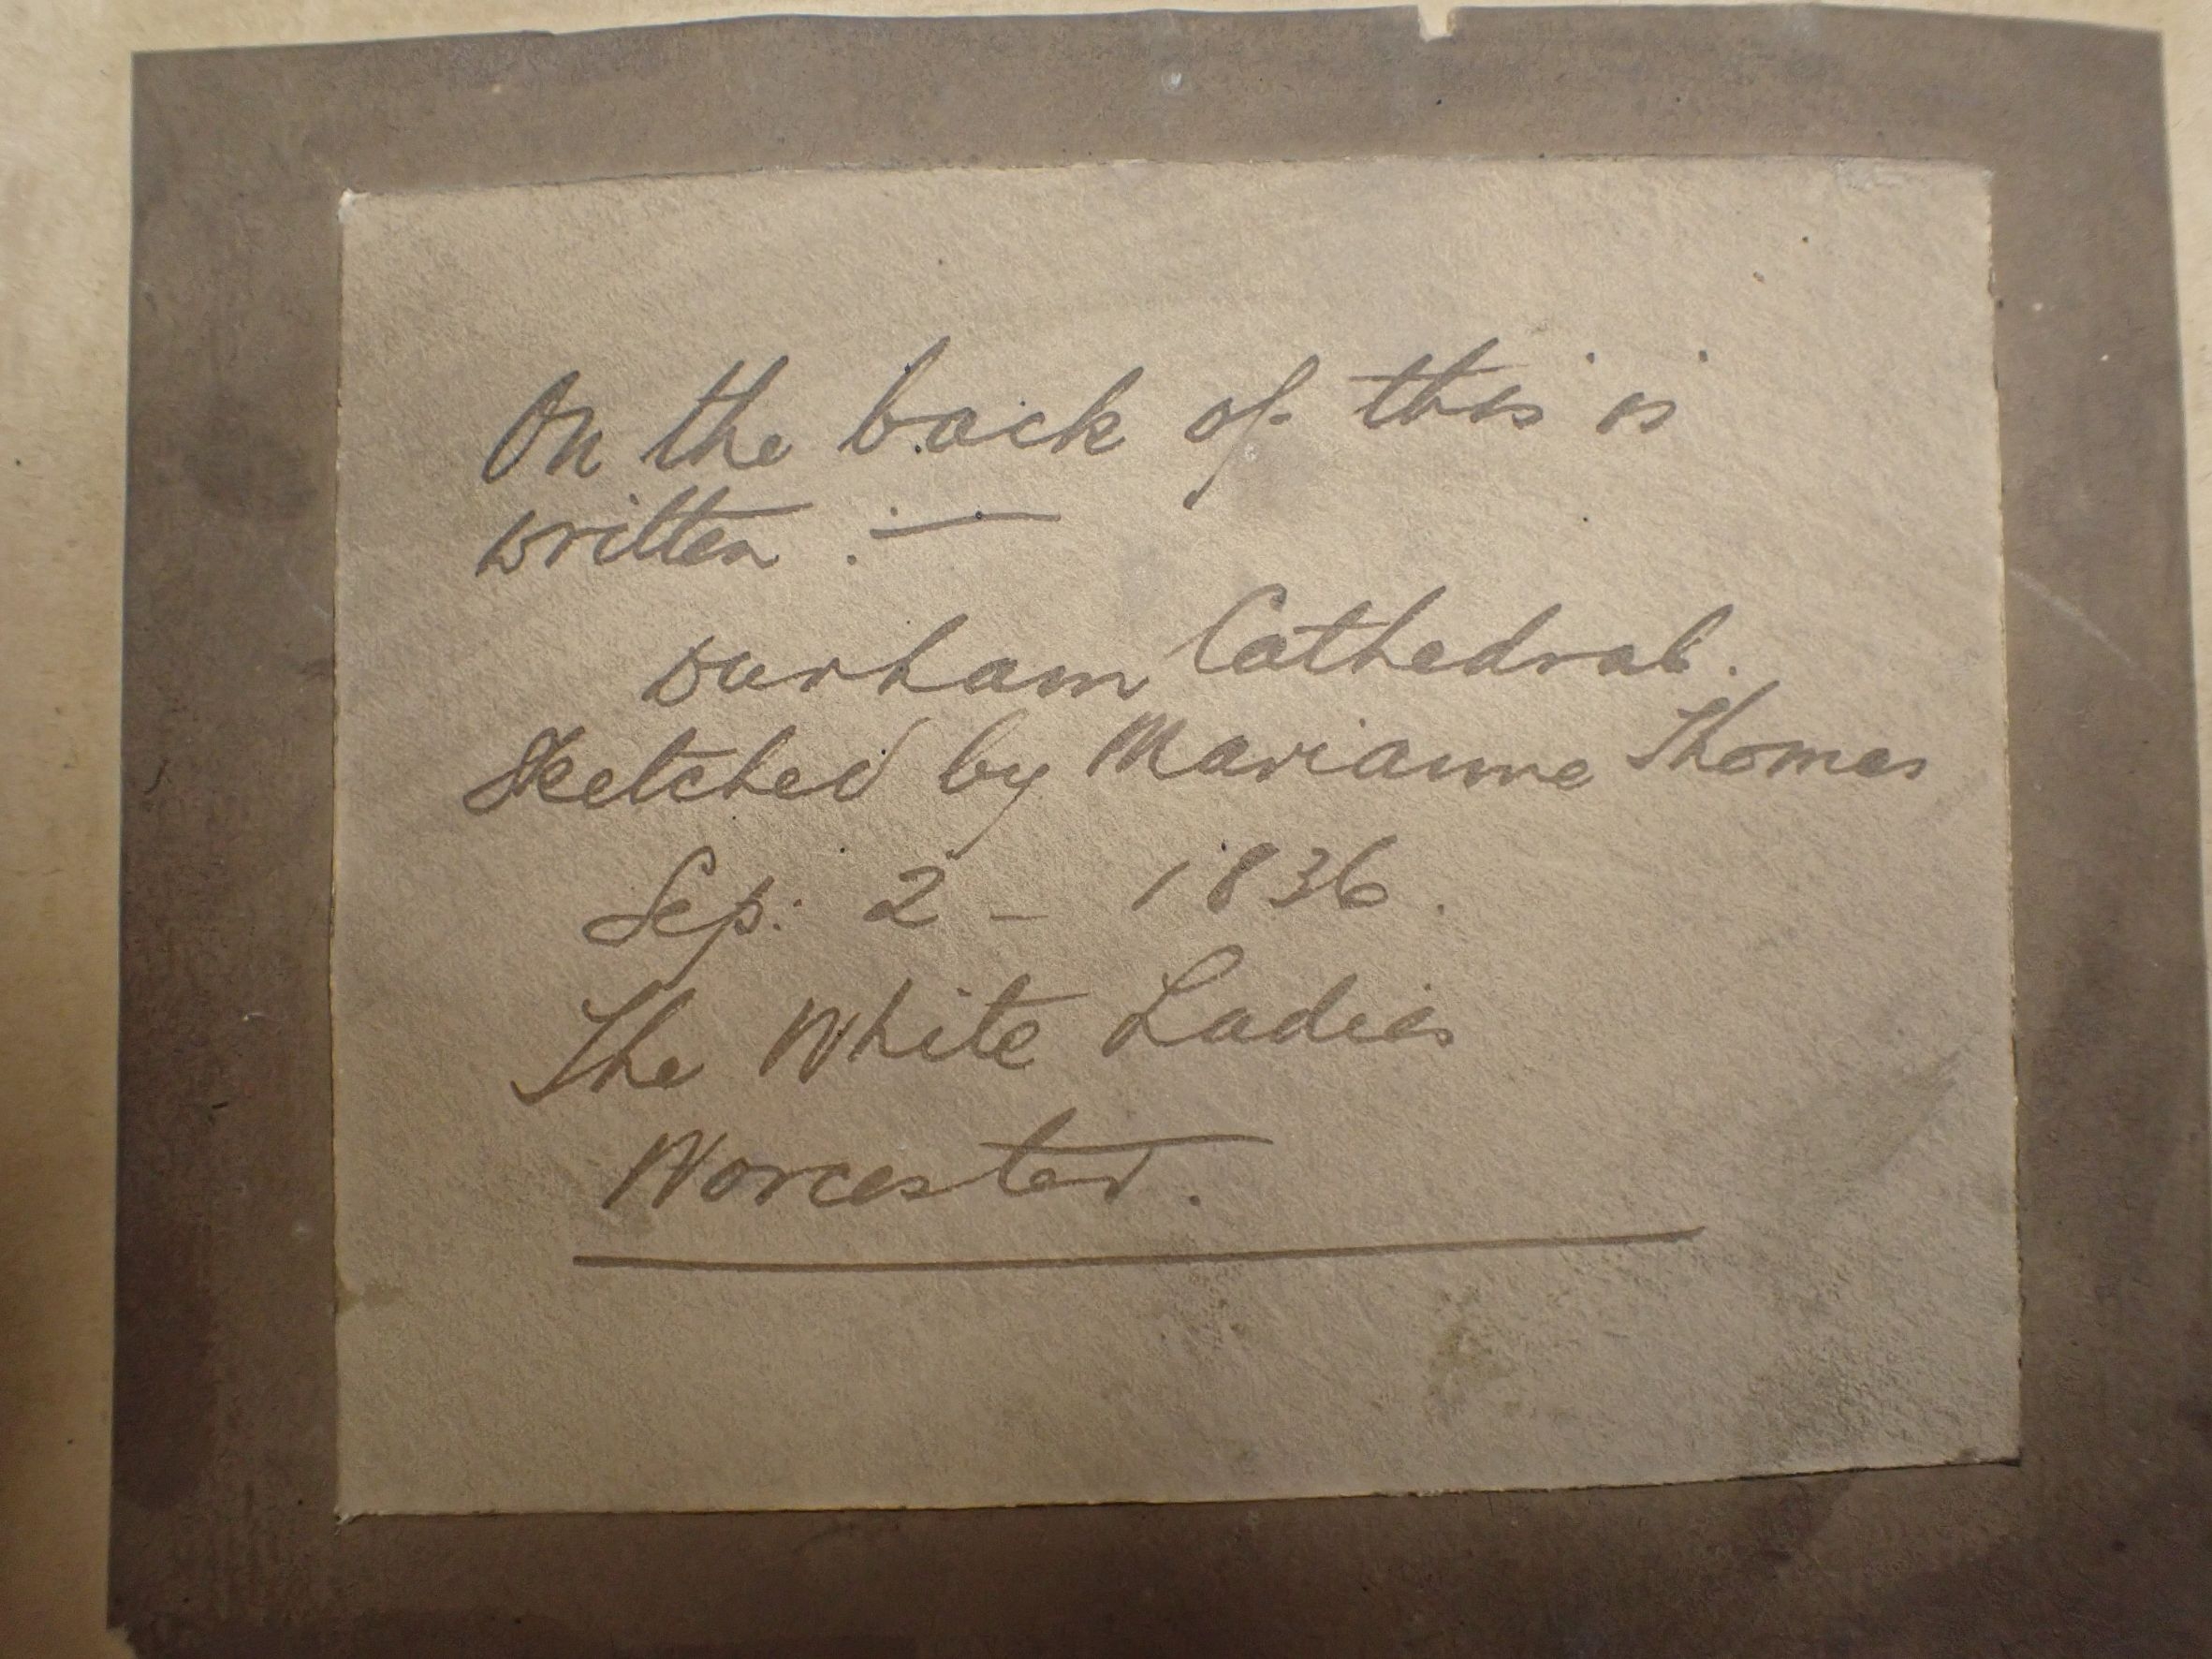 On the back of this is
written :—
Durham Cathedral.
Sketched by Marianne Thomas
Sep: 2 – 1836.
The White Ladies
Worcester.